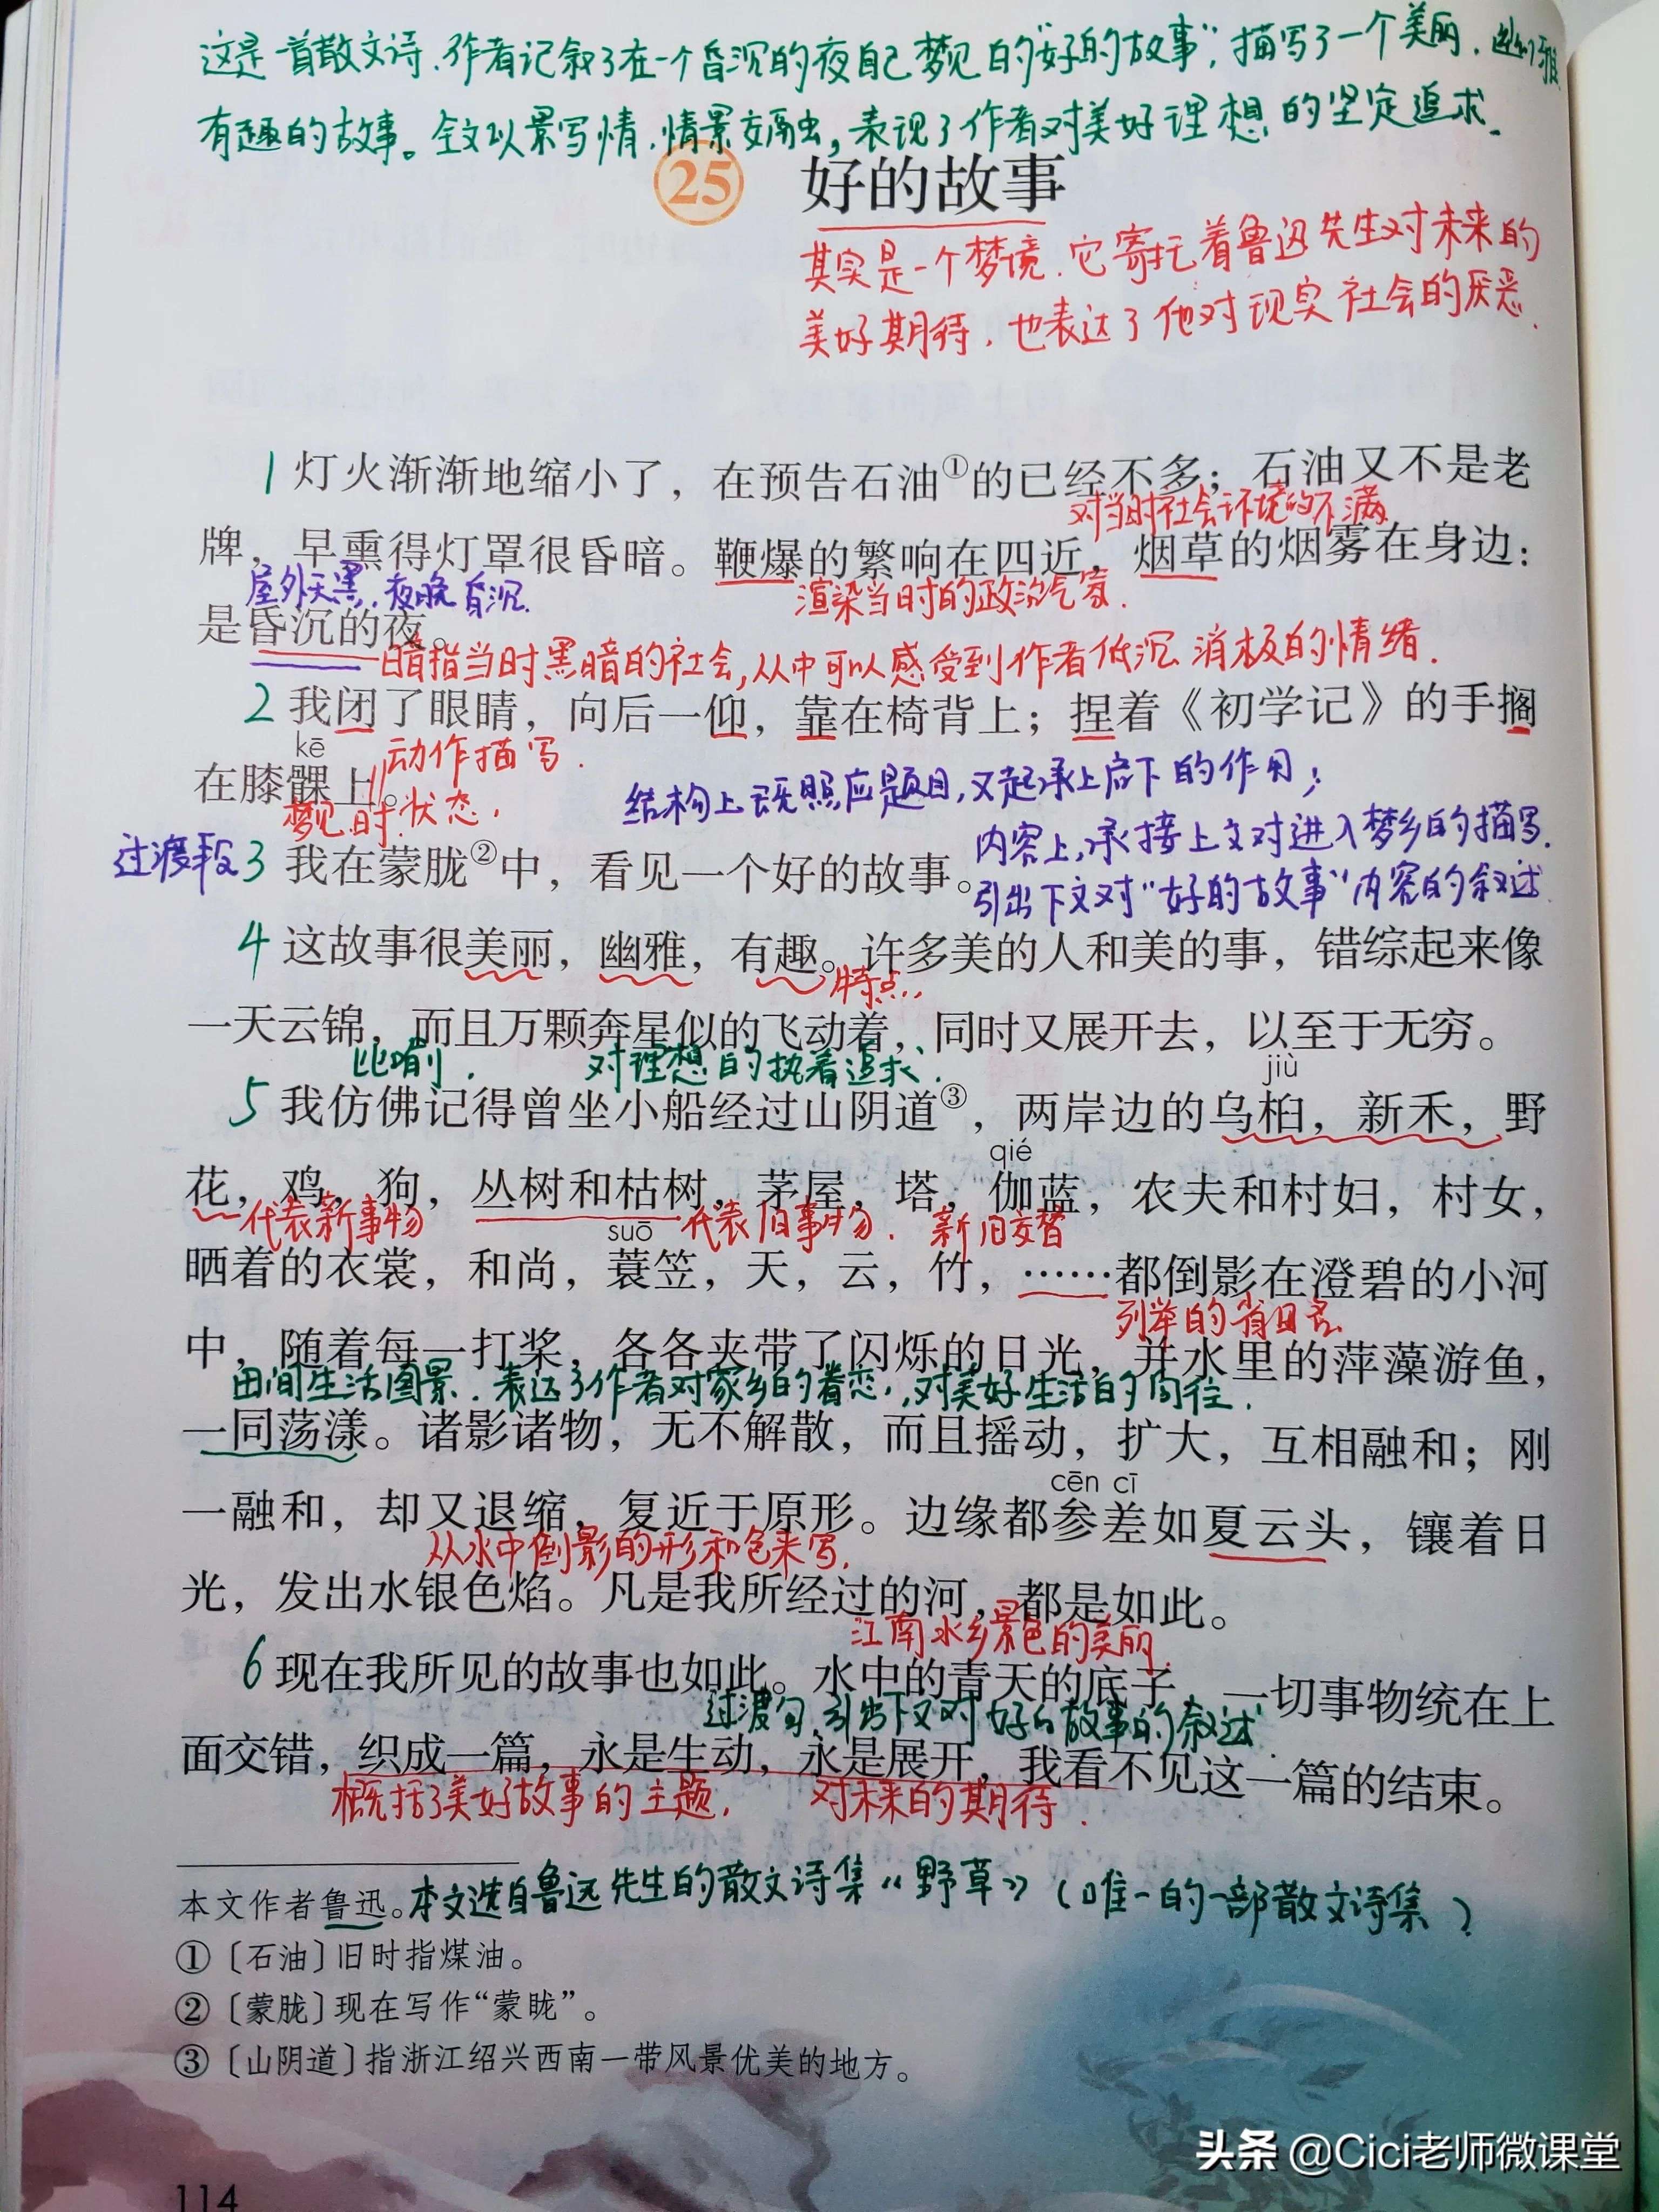 这是一首散文诗.作者记叙了在一个昏沉的夜自己梦见的“好的故事”,描写了一个美丽.幽雅
有趣的故事。全文以景写情.情景交融,表现了作者对美好理想的坚定追求.
25 好的故事
其实是一个梦境.它寄托着鲁迅先生对未来的
美好期待.也表达了他对现实社会的厌恶.
1 灯火渐渐地缩小了，在预告石油①的已经不多；石油又不是老
对当时社会环境的不满
牌，早熏得灯罩很昏暗。鞭爆的繁响在四近，烟草的烟雾在身边：
屋外天黑.夜晚昏沉. 渲染当时的政治气氛.
是昏沉的夜。
暗指当时黑暗的社会,从中可以感受到作者低沉消极的情绪.
2 我闭了眼睛，向后一仰，靠在椅背上；捏着《初学记》的手搁
kē
动作描写.
在膝髁上。
梦见时.状态.
结构上既照应题目,又起承上启下的作用;
内容上,承接上文对进入梦乡的描写.
过渡段 3 我在蒙胧②中，看见一个好的故事。
引出下文对“好的故事”内容的叙述.
4 这故事很美丽，幽雅，有趣。许多美的人和美的事，错综起来像
特点.
一天云锦，而且万颗奔星似的飞动着，同时又展开去，以至于无穷。
比喻. 对理想的执着追求.
jiù
5 我仿佛记得曾坐小船经过山阴道③，两岸边的乌桕，新禾，野
qié
花，鸡，狗，丛树和枯树，茅屋，塔，伽蓝，农夫和村妇，村女，
代表新事物 代表旧事物. 新旧交替
suō
晒着的衣裳，和尚，蓑笠，天，云，竹，……都倒影在澄碧的小河
列举的省略
中，随着每一打桨，各各夹带了闪烁的日光，并水里的萍藻游鱼，
田间生活图景.表达了作者对家乡的眷恋,对美好生活的向往.
一同荡漾。诸影诸物，无不解散，而且摇动，扩大，互相融和；刚
cēn cī
一融和，却又退缩，复近于原形。边缘都参差如夏云头，镶着日
从水中倒影的形和色来写.
光，发出水银色焰。凡是我所经过的河，都是如此。
江南水乡景色的美丽.
6 现在我所见的故事也如此。水中的青天的底子，一切事物统在上
过渡句.引出下文对好的故事的叙述.
面交错，织成一篇，永是生动，永是展开，我看不见这一篇的结束。
概括了美好故事的主题. 对未来的期待.
本文作者鲁迅。本文选自鲁迅先生的散文诗集《野草》(唯一的一部散文诗集)
①〔石油〕旧时指煤油。
②〔蒙胧〕现在写作“蒙眬”。
③〔山阴道〕指浙江绍兴西南一带风景优美的地方。
114
头条 @Cici老师微课堂